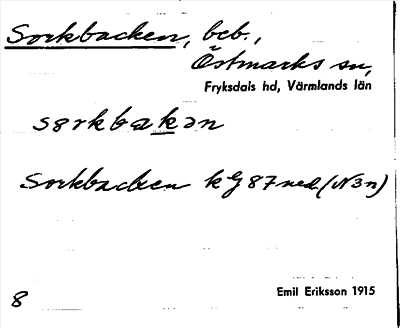 Sorkbacken, beb.,
Östmarks sn,
Fryksdals hd, Värmlands län
sørkbakən
Sorkbacken kG 87 ned. (N3n)
Emil Eriksson 1915
8